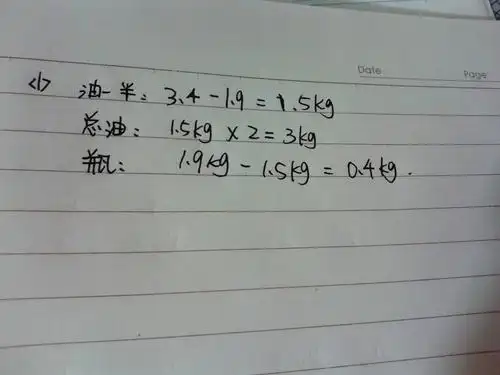 Date
Page
<1> 油一半: 3.4 - 1.9 = 1.5kg
总油: 1.5kg × 2 = 3kg
瓶: 1.9kg - 1.5kg = 0.4kg.